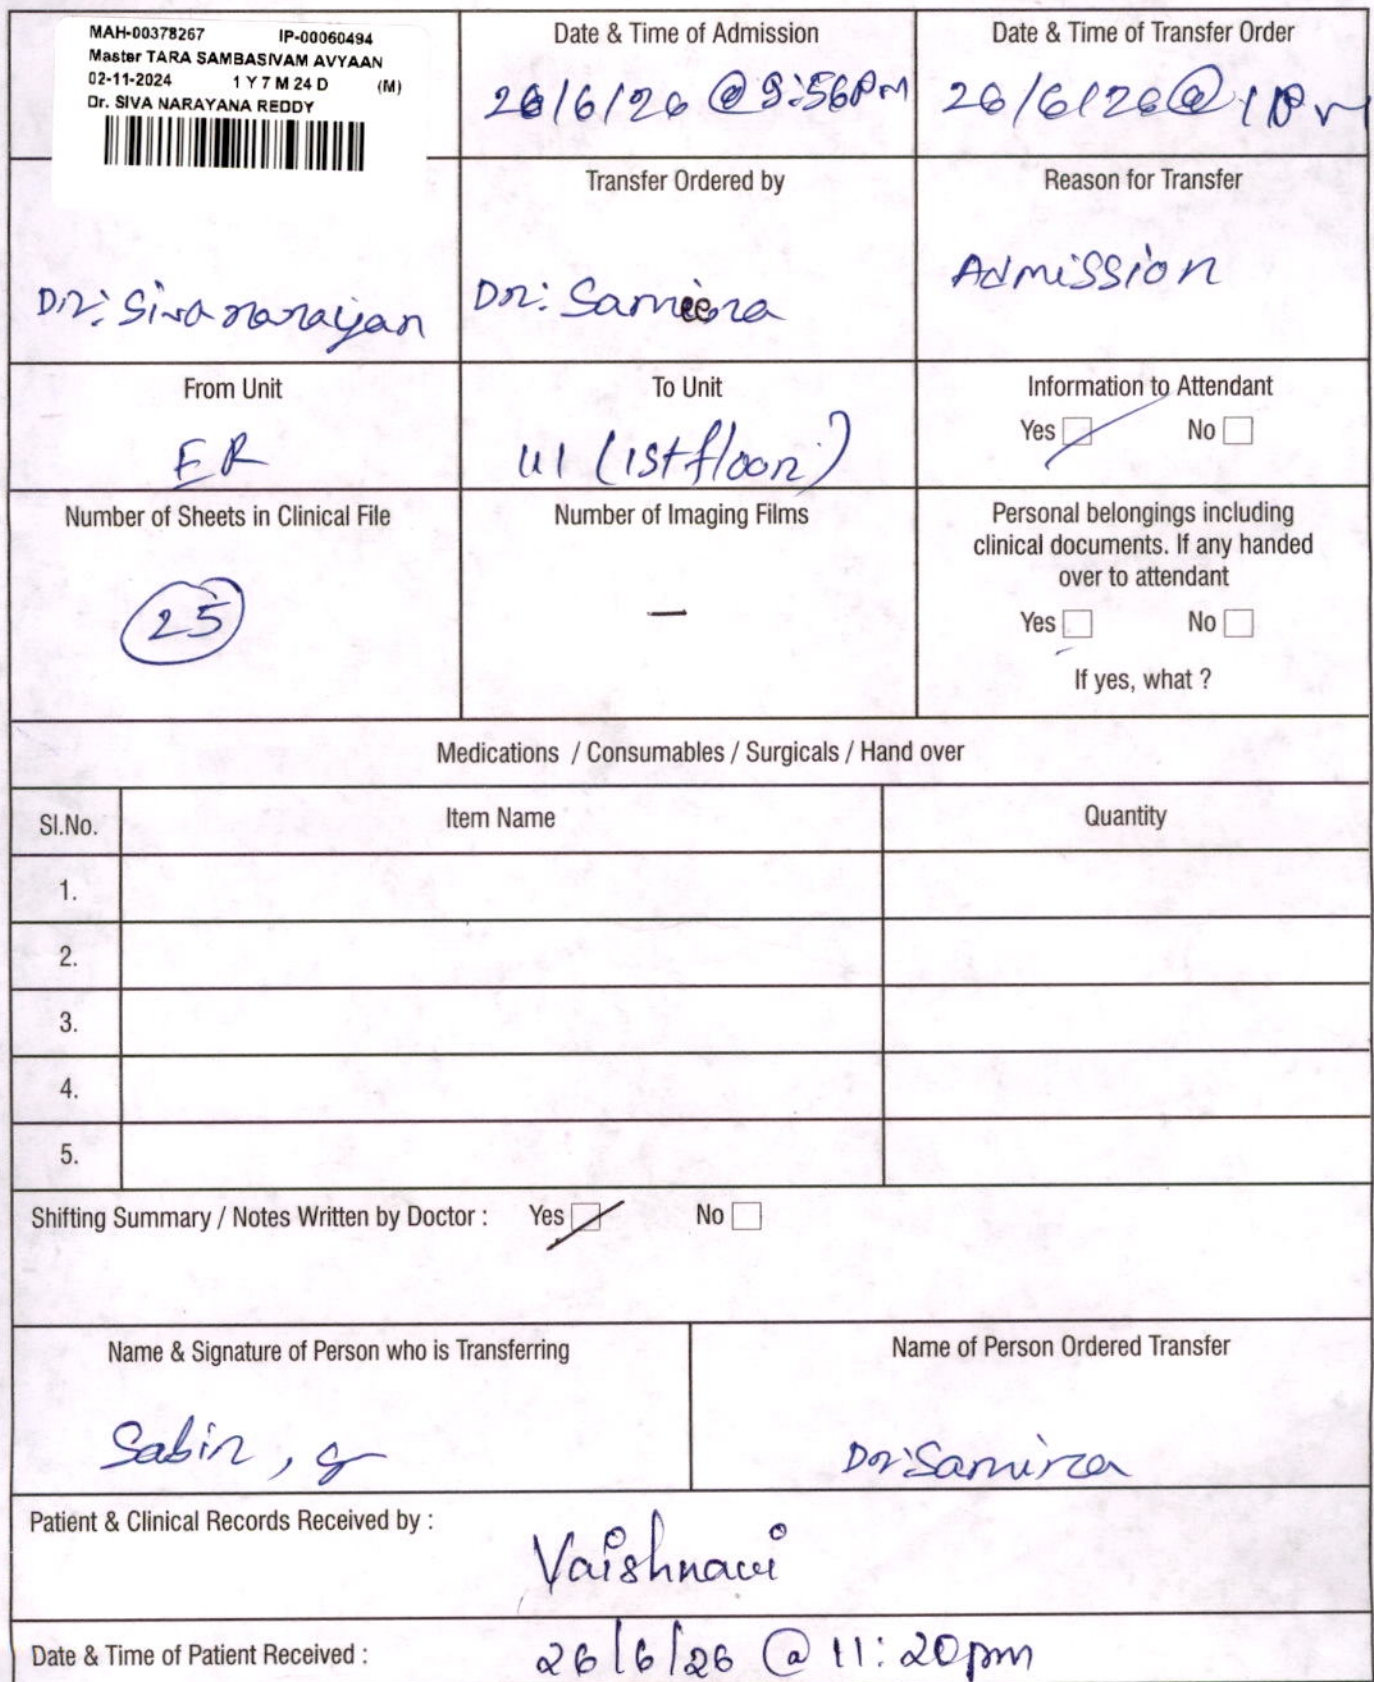 MAH-00378267 IP-00060494
Master TARA SAMBASIVAM AVYAAN
02-11-2024 1 Y 7 M 24 D (M)
Dr. SIVA NARAYANA REDDY
Date & Time of Admission
26/6/26 @ 9:56PM
Date & Time of Transfer Order
26/6/26 @
Dr: Sivanarayan
Transfer Ordered by
Dr: Sameera
Reason for Transfer
Admission
From Unit
ER
To Unit
(1st floor)
Information to Attendant
Yes No
Number of Sheets in Clinical File
25
Number of Imaging Films
—
Personal belongings including
clinical documents. If any handed
over to attendant
Yes No
If yes, what ?
Medications / Consumables / Surgicals / Hand over
Sl.No. Item Name Quantity
1.
2.
3.
4.
5.
Shifting Summary / Notes Written by Doctor : Yes No
Name & Signature of Person who is Transferring
Sabin,
Name of Person Ordered Transfer
Dr: Samira
Patient & Clinical Records Received by :
Vaishnavi
Date & Time of Patient Received :
26/6/26 @ 11:20pm